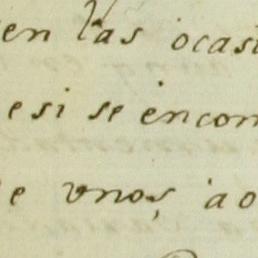 en las ocasi
esi se encon
e vnos, ao